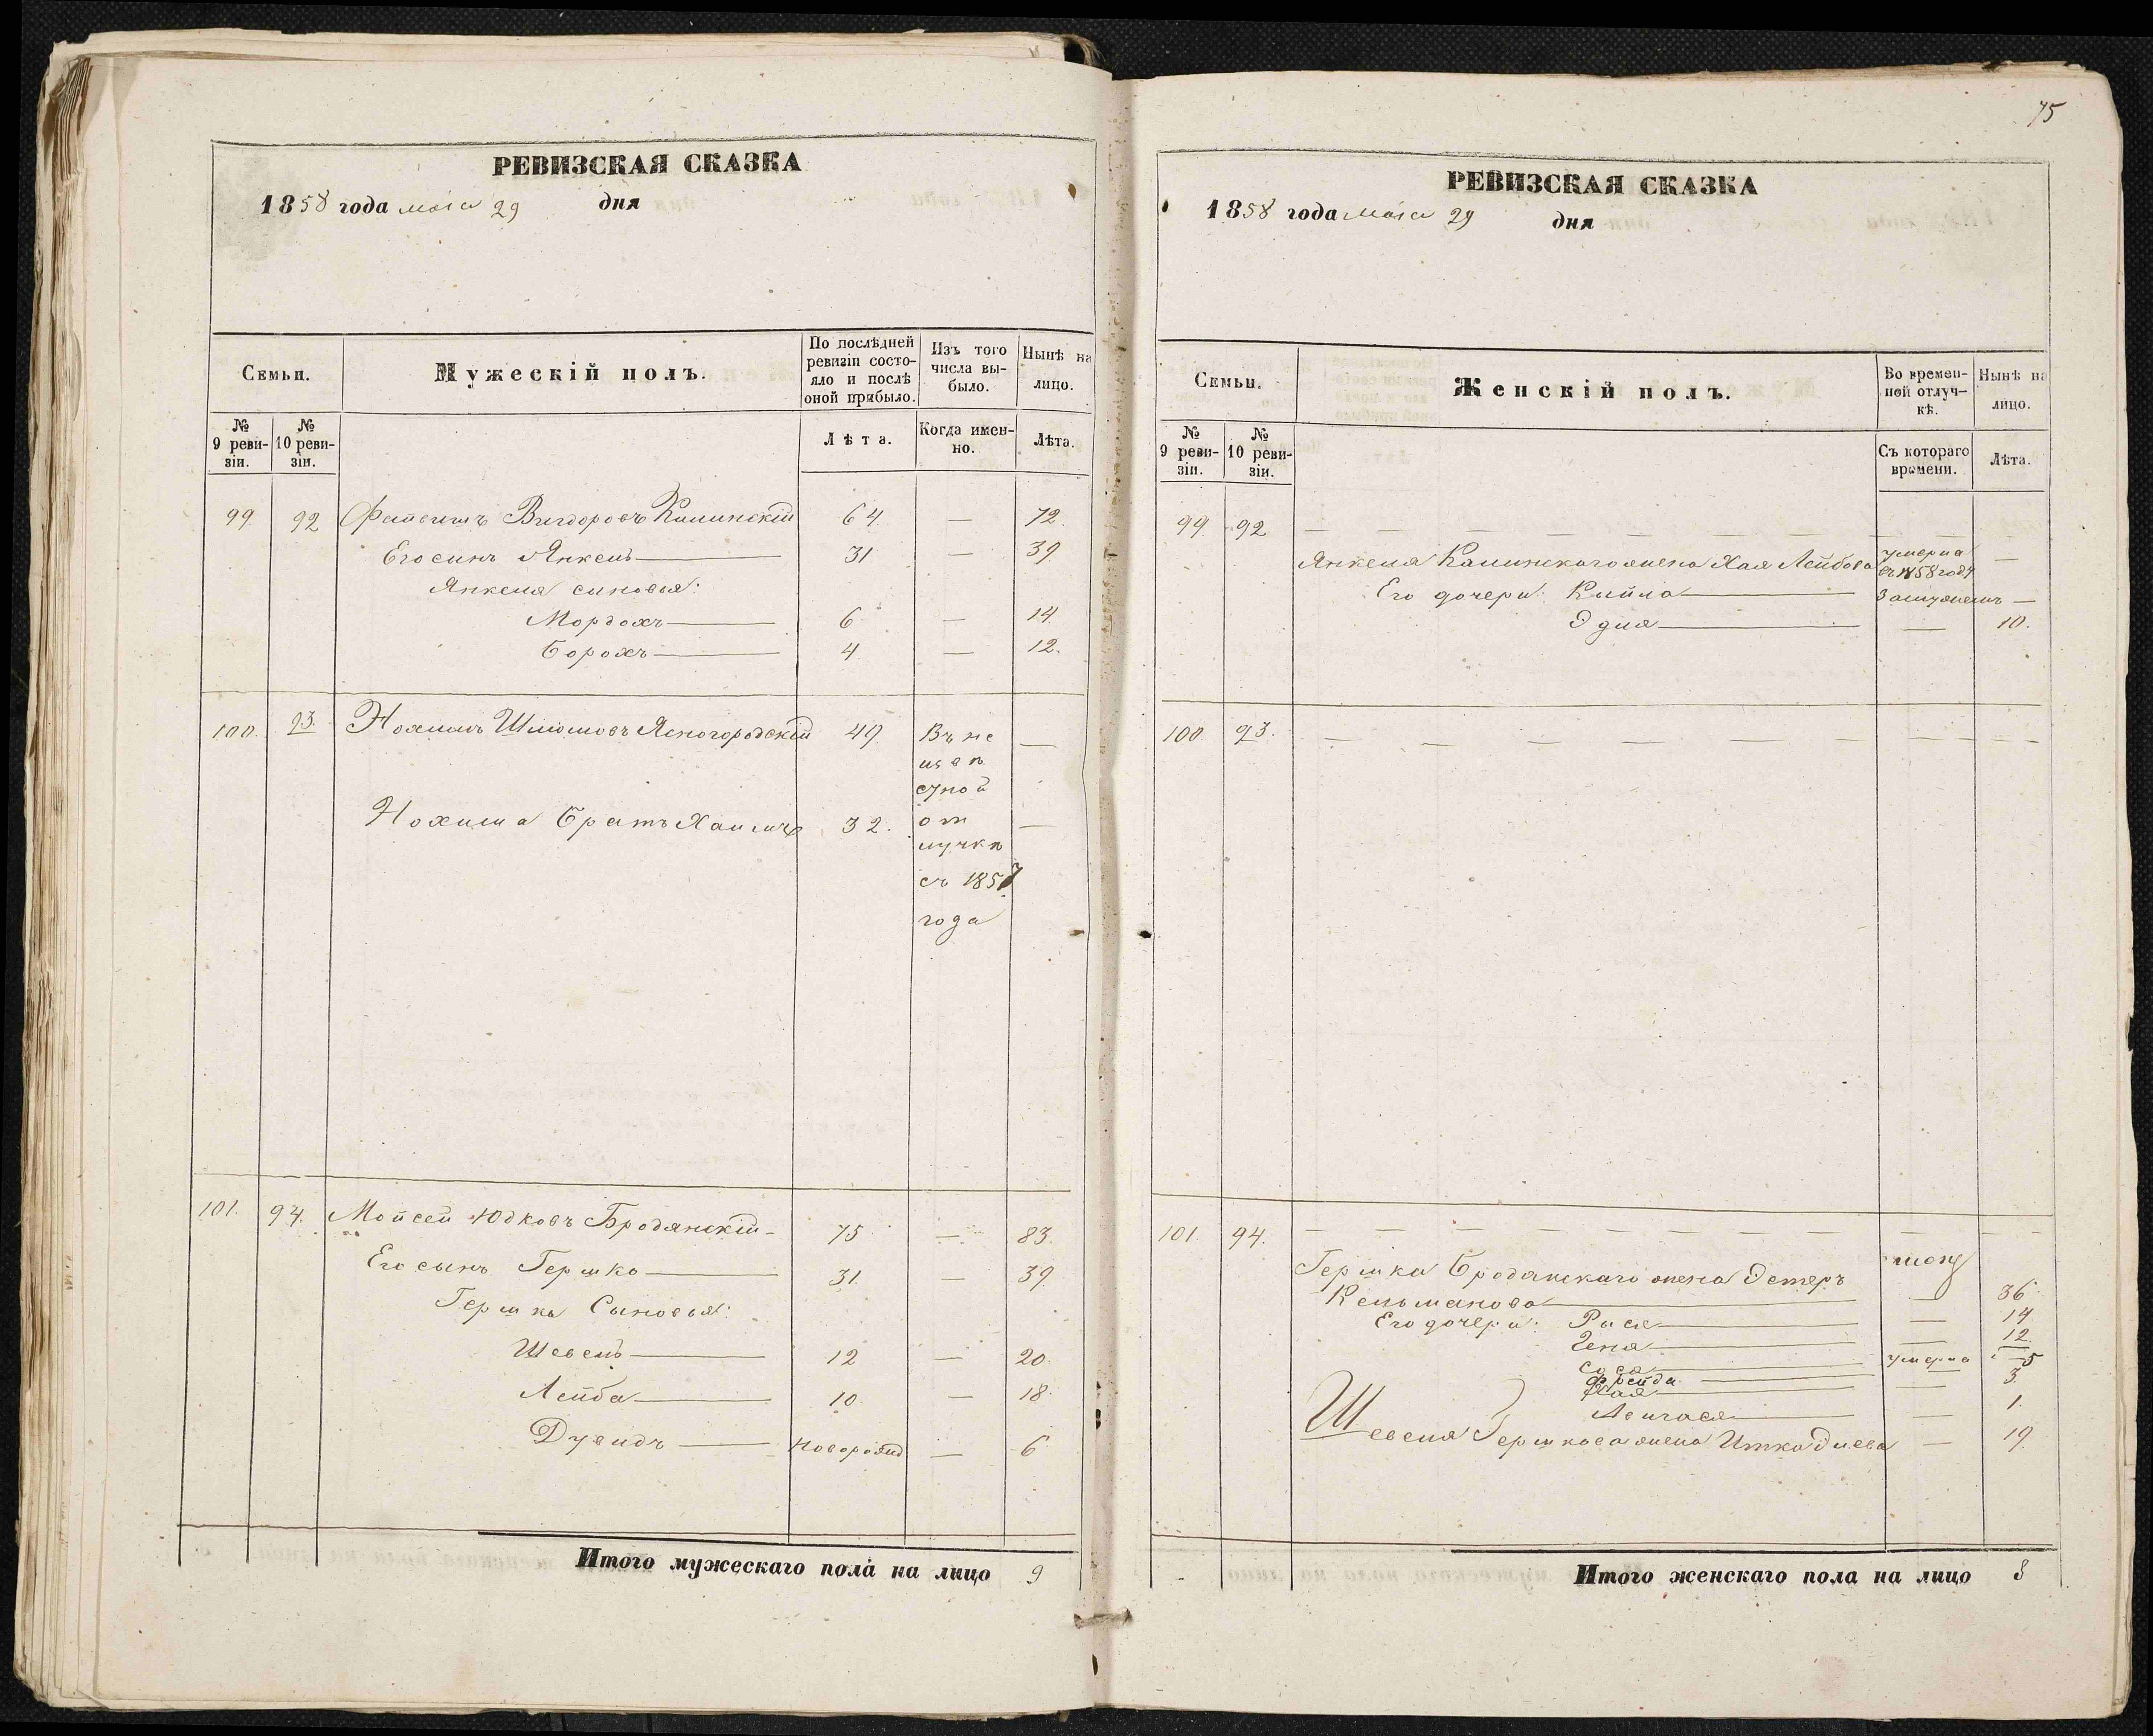 РЕВИЗСКАЯ СКАЗКА
1858 года маія 29 дня
Семьи.
Мужескій полъ.
По послѣдней ревизіи состояло и послѣ оной прибыло.
Изъ того числа выбыло.
Нынѣ на лицо.
№ 9 ревизіи.
№ 10 ревизіи.
Лѣта.
Когда именно.
Лѣта.
99. 92 Файвишъ Вигдоровъ Калинскій 64 — 72.
Его синъ Янкель — 31 — 39
Янкеля синовья:
Мордохъ — 6 — 14
Борохъ — 4 — 12.
100. 93. Нохимъ Шліомовъ Ясногородскій 49. Въ не —
извѣ
сной
Нохима Братъ Хаимъ 32. от —
лучкѣ
съ 1857
года
101. 94. Мойсей Юдковъ Бродянскій — 75 — 83.
Его сынъ Гершко — 31. — 39
Гершка Сыновья:
Шевель — 12 — 20.
Лейба — 10. — 18.
Дувидъ — новорожд — 6
Итого мужескаго пола на лицо 9
75
РЕВИЗСКАЯ СКАЗКА
1858 года маія 29 дня
Семьи.
Женскій полъ.
Во временной отлучкѣ.
Нынѣ на лицо.
№ 9 ревизіи.
№ 10 ревизіи.
Съ котораго времени.
Лѣта.
99. 92 — — — — — — — —
Янкеля Калинскаго жена Хая Лейбова умерла въ 1858 году —
Его дочери: Кейла — Замужемъ —
Эдля — — 10.
100. 93. — — — — — — — — —
101. 94. — — — — — — — —
Гершка Бродянскаго жена Эстеръ
Кельманова — — 36
Его дочери: Рися — — 14
Геня — — 12.
Сося — умерла —
Фрейда — — 5
Хая — — 3.
— — 1.
Шевеля Гершкова жена Итка — 19.
Итого женскаго пола на лицо 8